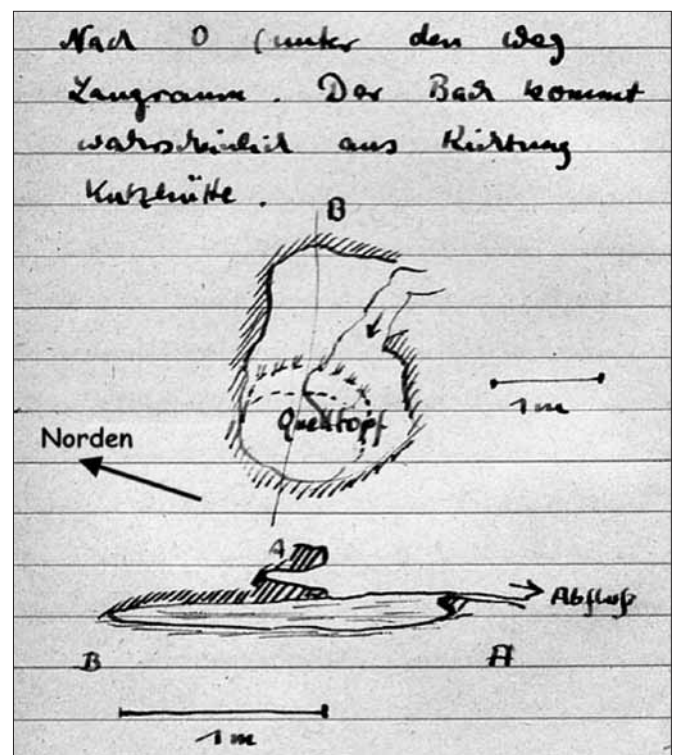 Nach O (unter den Weg
Der Bach kommt
wahrscheinlich aus Richtung
Kutzhütte.
B
1m
Quelltopf
Norden
A
Abfluß
B A
1m